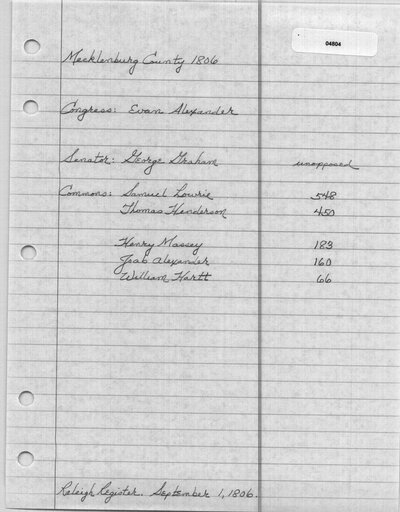 04804
Mecklenburg County 1806
Congress: Evan Alexander
Senator: George Graham unopposed
Commons: Samuel Lowrie 548
Thomas Henderson 450
Henry Massey 183
Joab Alexander 160
William Hartt 66
Raleigh Register. September 1, 1806.